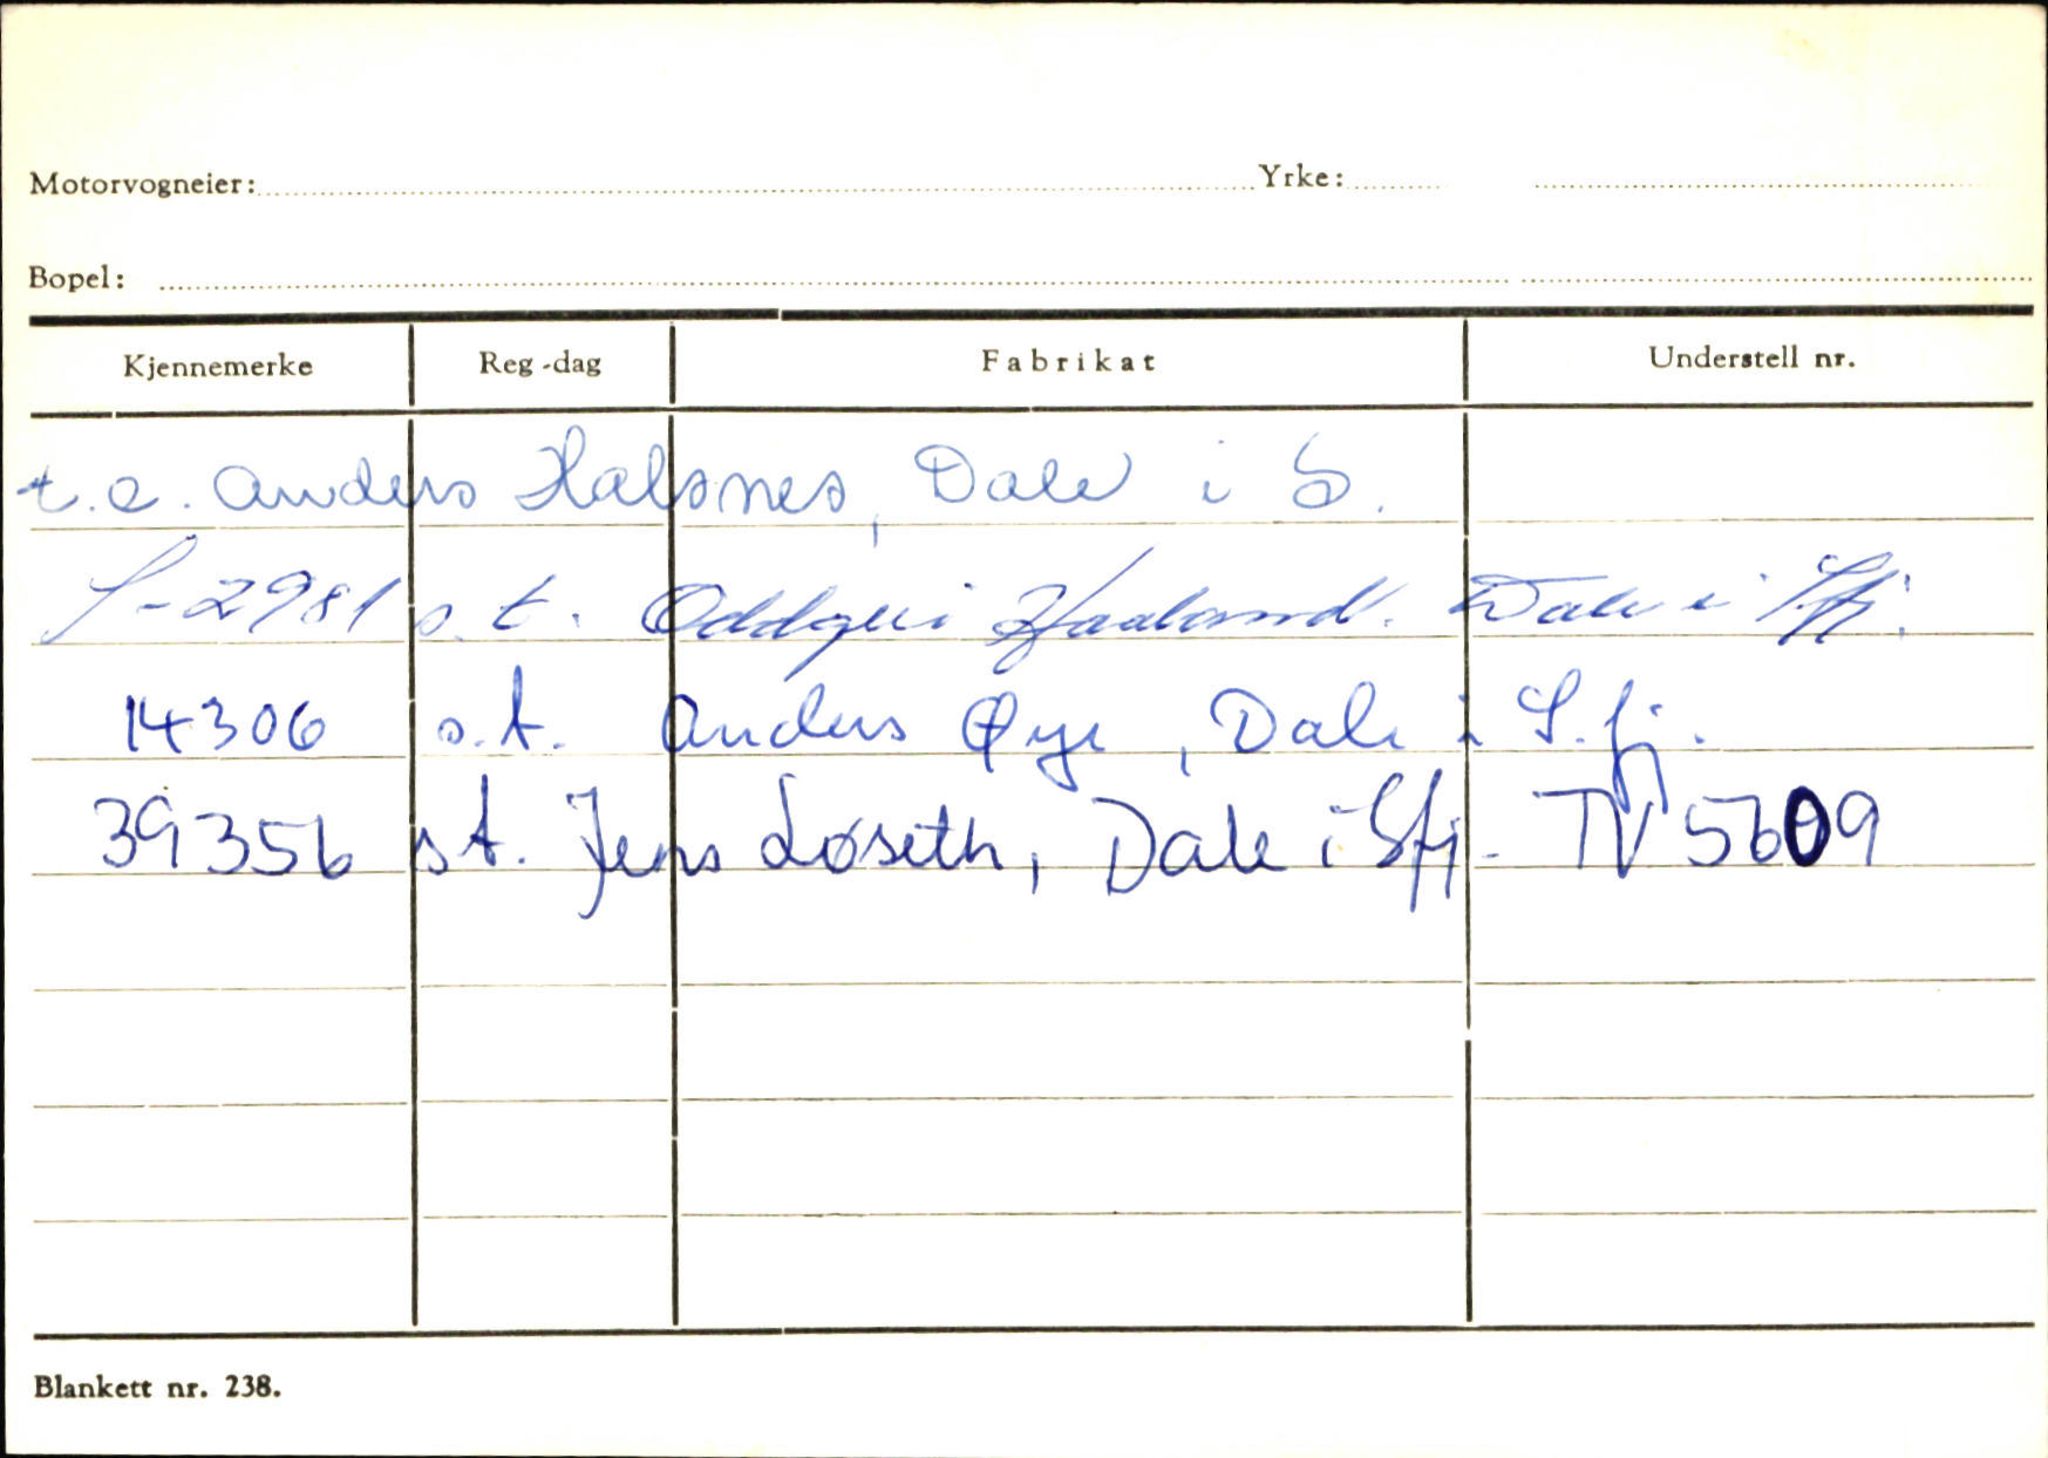 Motorvogneier: Yrke:
Bopel:
Kjennemerke Reg-dag Fabrikat Understell nr.
Anders Halsnes, Dale i S.
S-2981 s.t. Oddgeir Haaland. Dale i Sfj.
14306 s.t. Anders Øye, Dale i S.fj.
39356 st. Jens Løseth, Dale i Sfj - TV 5609
Blankett nr. 238.